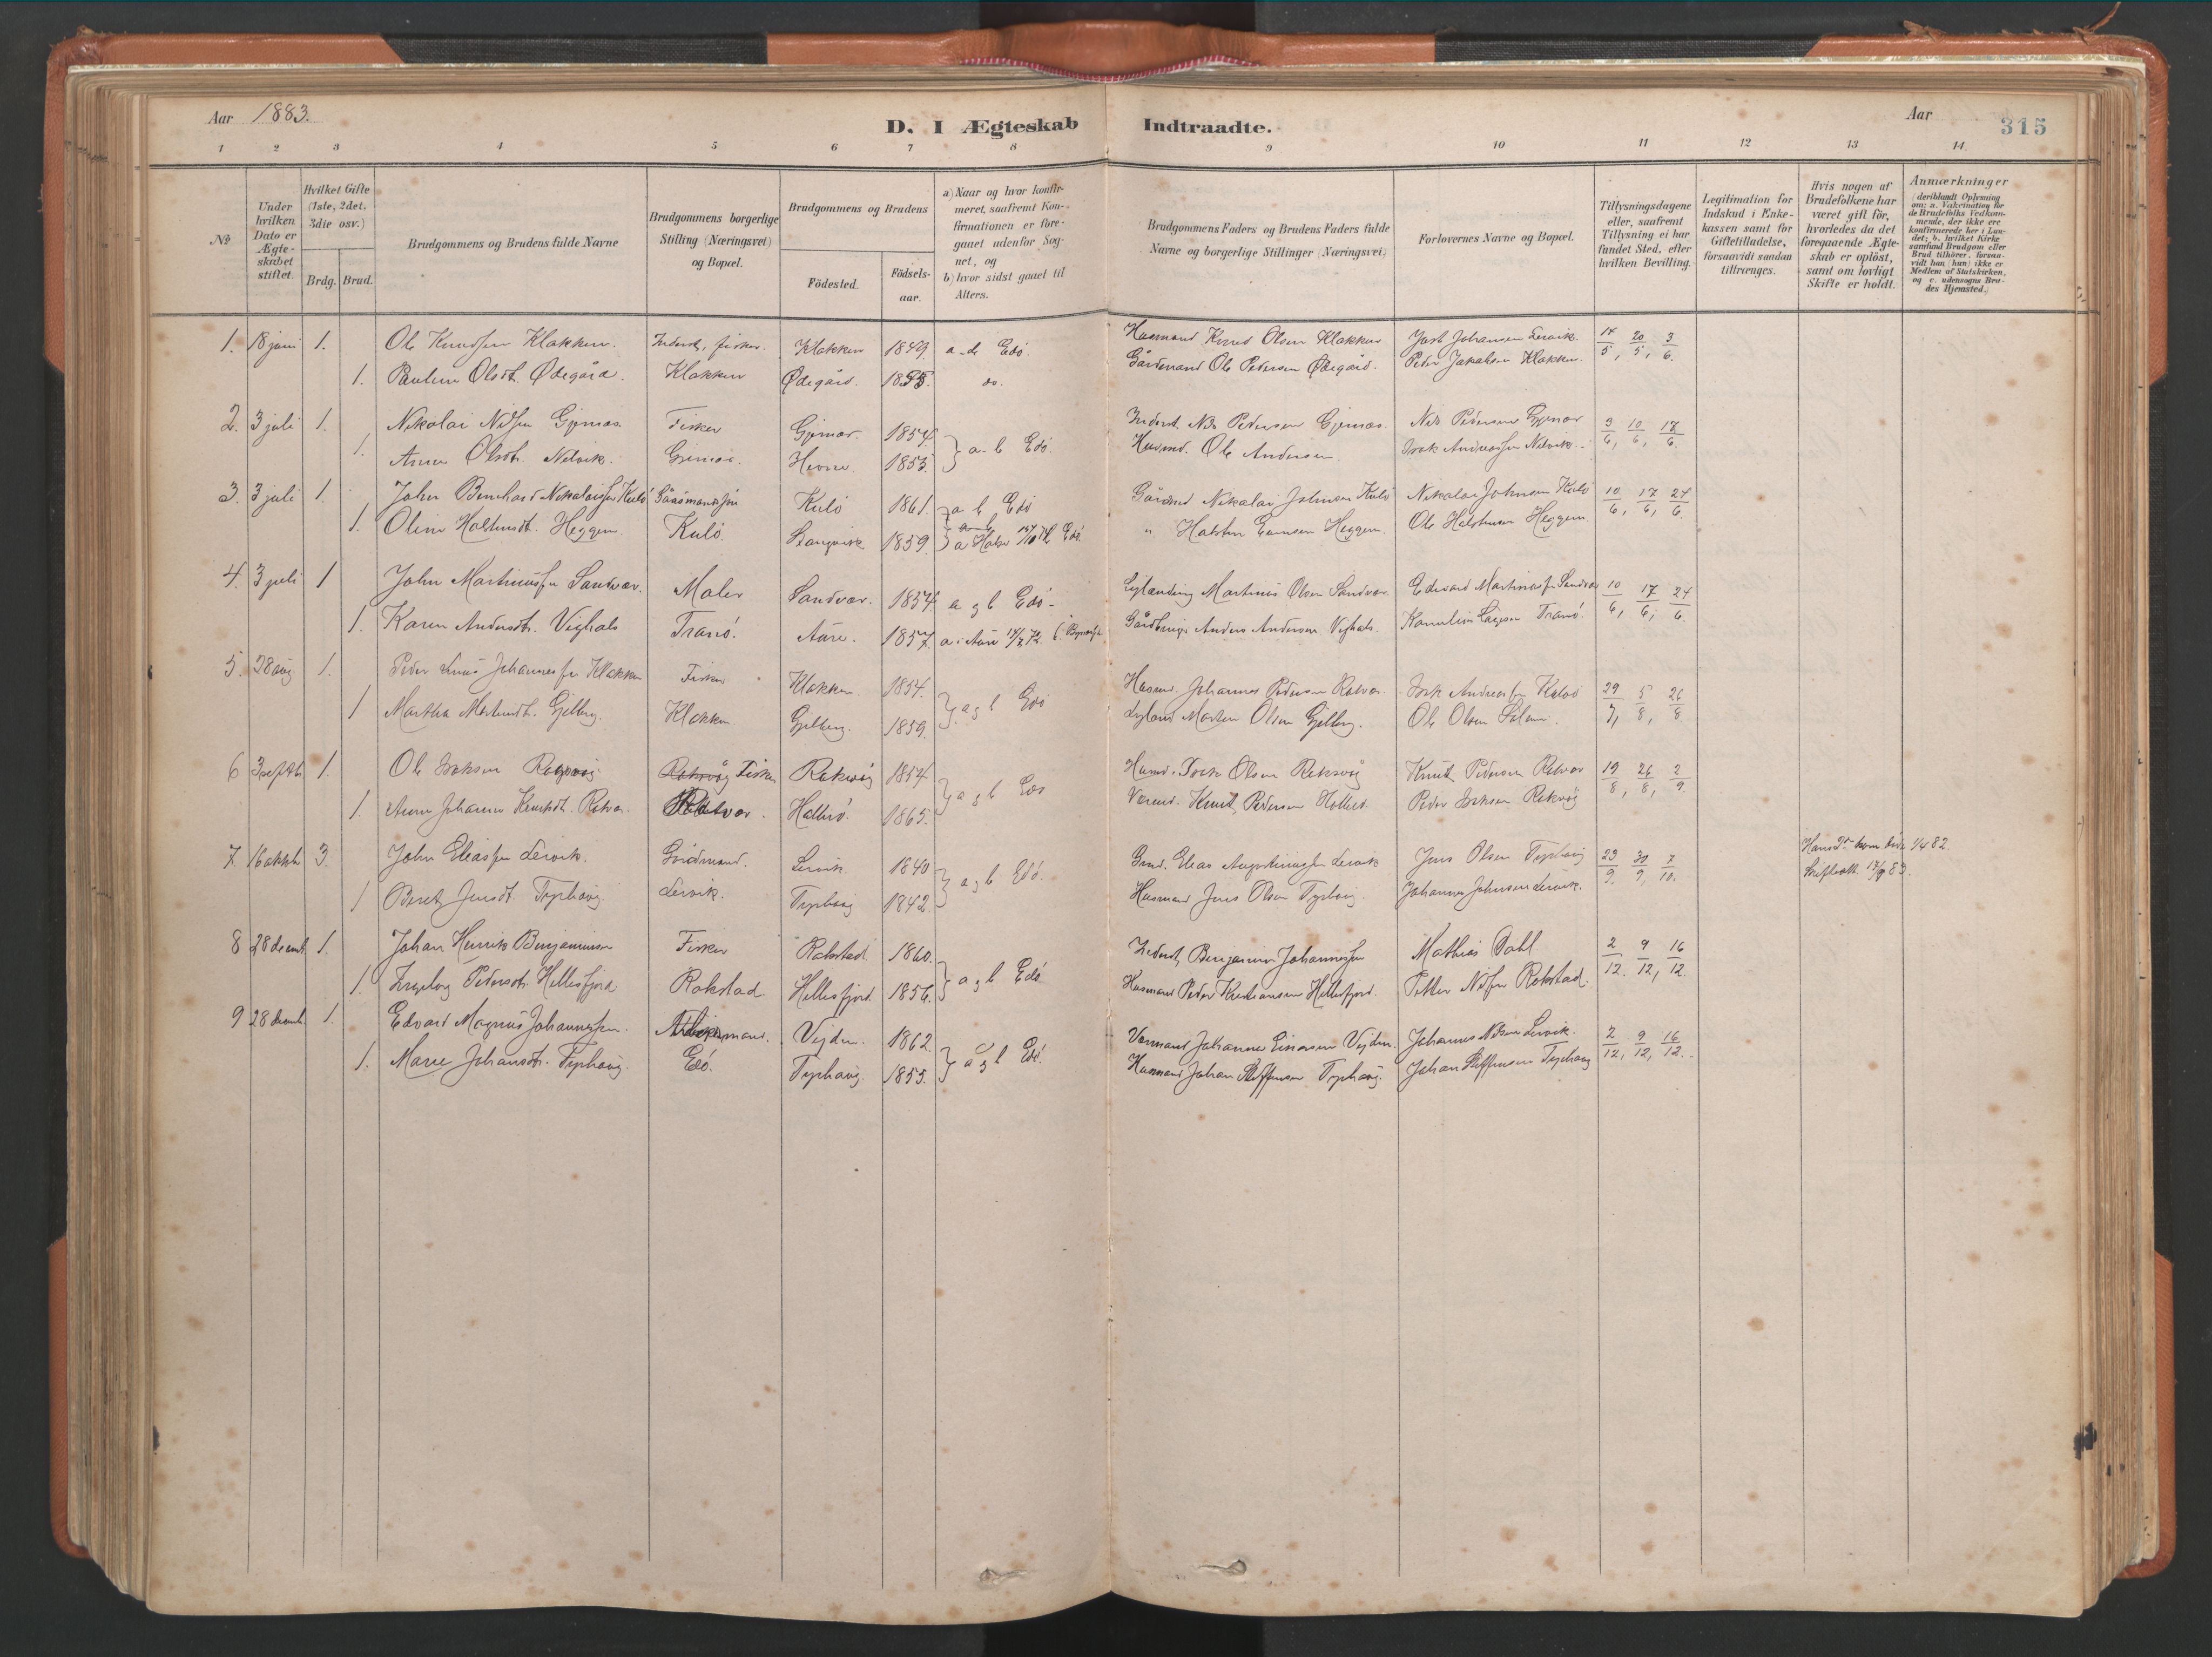 Aar 1883.
D. I Ægteskab Indtraadte.
Aar
315
1 2 3 4 5 6 7 8 9 10 11 12 13 14
№
Under hvilken Dato er Ægteskabet stiftet.
Hvilket Gifte (1ste, 2det, 3die osv.)
Brdg. Brud.
Brudgommens og Brudens fulde Navne
Brudgommens borgerlige Stilling (Næringsvei) og Bopæl.
Brudgommens og Brudens
Födested.
Födselsaar.
a) Naar og hvor konfirmeret, saafremt Konfirmationen er foregaaet udenfor Sognet, og
b) hvor sidst gaaet til Alters.
Brudgommens Faders og Brudens Faders fulde Navne og borgerlige Stillinger (Næringsvei)
Forlovernes Navne og Bopæl.
Tillysningsdagene eller, saafremt Tillysning ei har fundet Sted, efter hvilken Bevilling.
Legitimation for Indskud i Enkekassen samt for Giftetilladelse, forsaavidt saadan tiltrænges.
Hvis nogen af Brudefolkene har været gift för, hvorledes da det foregaaende Ægteskab er oplöst, samt om lovligt Skifte er holdt.
Anmærkninger (deriblandt Oplysning om: a. Vakcination for de Brudefolks Vedkommende, der ikke ere konfirmerede her i Landet; b. hvilket Kirkesamfund Brudgom eller Brud tilhörer, forsaavidt han (hun) ikke er Medlem af Statskirken, og c. udensogns Brudes Hjemsted.)
1. 18 juni 1. Ole Knudsen Klakken. Inderst, fisker. Klakken 1849 a. b. Edö. Husmand Knud Olsen Klakken Johansen Lervik. 17/5, 20/5, 3/6.
1. Pauline Olsdt. Ødegård. Klakken Ødegård. 1855. do. Gårdmand Ole Pedersen Ødegård. Peder Jakobsen Klakken.
2. 3 juli 1. Nikolai Nilsen Gjemæs. Fisker 1854 a. b. Edö. Inderst Nils Pedersen Gjemæs. Nils Pedersen 3/6, 10/6, 17/6.
1. Anna Olsdt. Nelvik. Hevne. 1853. Husmd. Ole Andersen. Isak Nelvik.
3. 3 juli 1. John Bernhard Nikolaisen Kulö Gårdmandssön Kulö 1861. a b Edö Nikolai Johnsen Kulö Nikolai Johnsen Kulö 10/6, 17/6, 24/6
1. Oline Halstensdt. Heggem. Kulö. Stangvik 1859. a Halse Edö. " Halsten Heggem. Ole Halstensen Heggem.
4. 3 juli 1 John Martinussen Sandvær. Maler Sandvær. 1854 a g b Edö. Martinus Olsen Sandvær. Edvard Martinussen Sandvær 10/6, 17/6, 24/6.
1. Karen Andersdt. Vighals Tranö. Aure. 1857. a i Aure Anders Andersen Vighals. Tranö.
5. 28 aug. 1. Peder Johannessen Klakken Fisker Klakken. 1854. a g b Edö Husmd. Johannes Pedersen Andreassen 29/7, 5/8, 26/8
1 Martha Mortensdt. Gjelberg. Klakken Gjelberg. 1859. Morten Olsen Gjelberg. Ole Olsen
6 3 septb. 1. Ole Isaksen Fisker Reksvåg 1854 a g b Edö Husmd. Isak Olsen Reksvåg Knut Pedersen 19/8, 26/8, 2/9.
1. Anne Johanna Knutsdt. Hallerö. 1865. Knut Pedersen Peder Isaksen Reksvåg
7. 16 oktbr. 3. John Eliassen Lervik. Gårdmand. Lervik. 1840 a g b Edö. Elias Lervik Jens Olsen Typhaug 23/9, 30/9, 7/10. döde 1482.
1 Beret Jensdt. Typhaug. Lervik. Typhaug 1842. Husmand Jens Olsen Typhaug. Johannes Johnsen Lervik. 83.
8 28 decmb. 1. Johan Henrik Benjaminsen Fisker Rokstad. 1860. a g b Edö. Inderst Benjamin Johannessen Mathias Dahl. 2/12, 9/12, 16/12.
1. Ingeborg Pedersdt. Hellesfjord Rokstad. Hellesfjord. 1856. Husmand Peder Kristiansen Hellesfjord. Petter Nilsen Rokstad.
9 28 decmb. 1. Edvard Magnus Johannessen. Vejden. 1862. a g b Edö. Johannes Vejden. Johannes Nilsen Lervik. 2/12, 9/12, 16/12.
1. Marie Johansdt. Typhaug. Edö. Typhaug. 1855. Husmand Johan Steffensen Typhaug. Johan Steffensen Typhaug